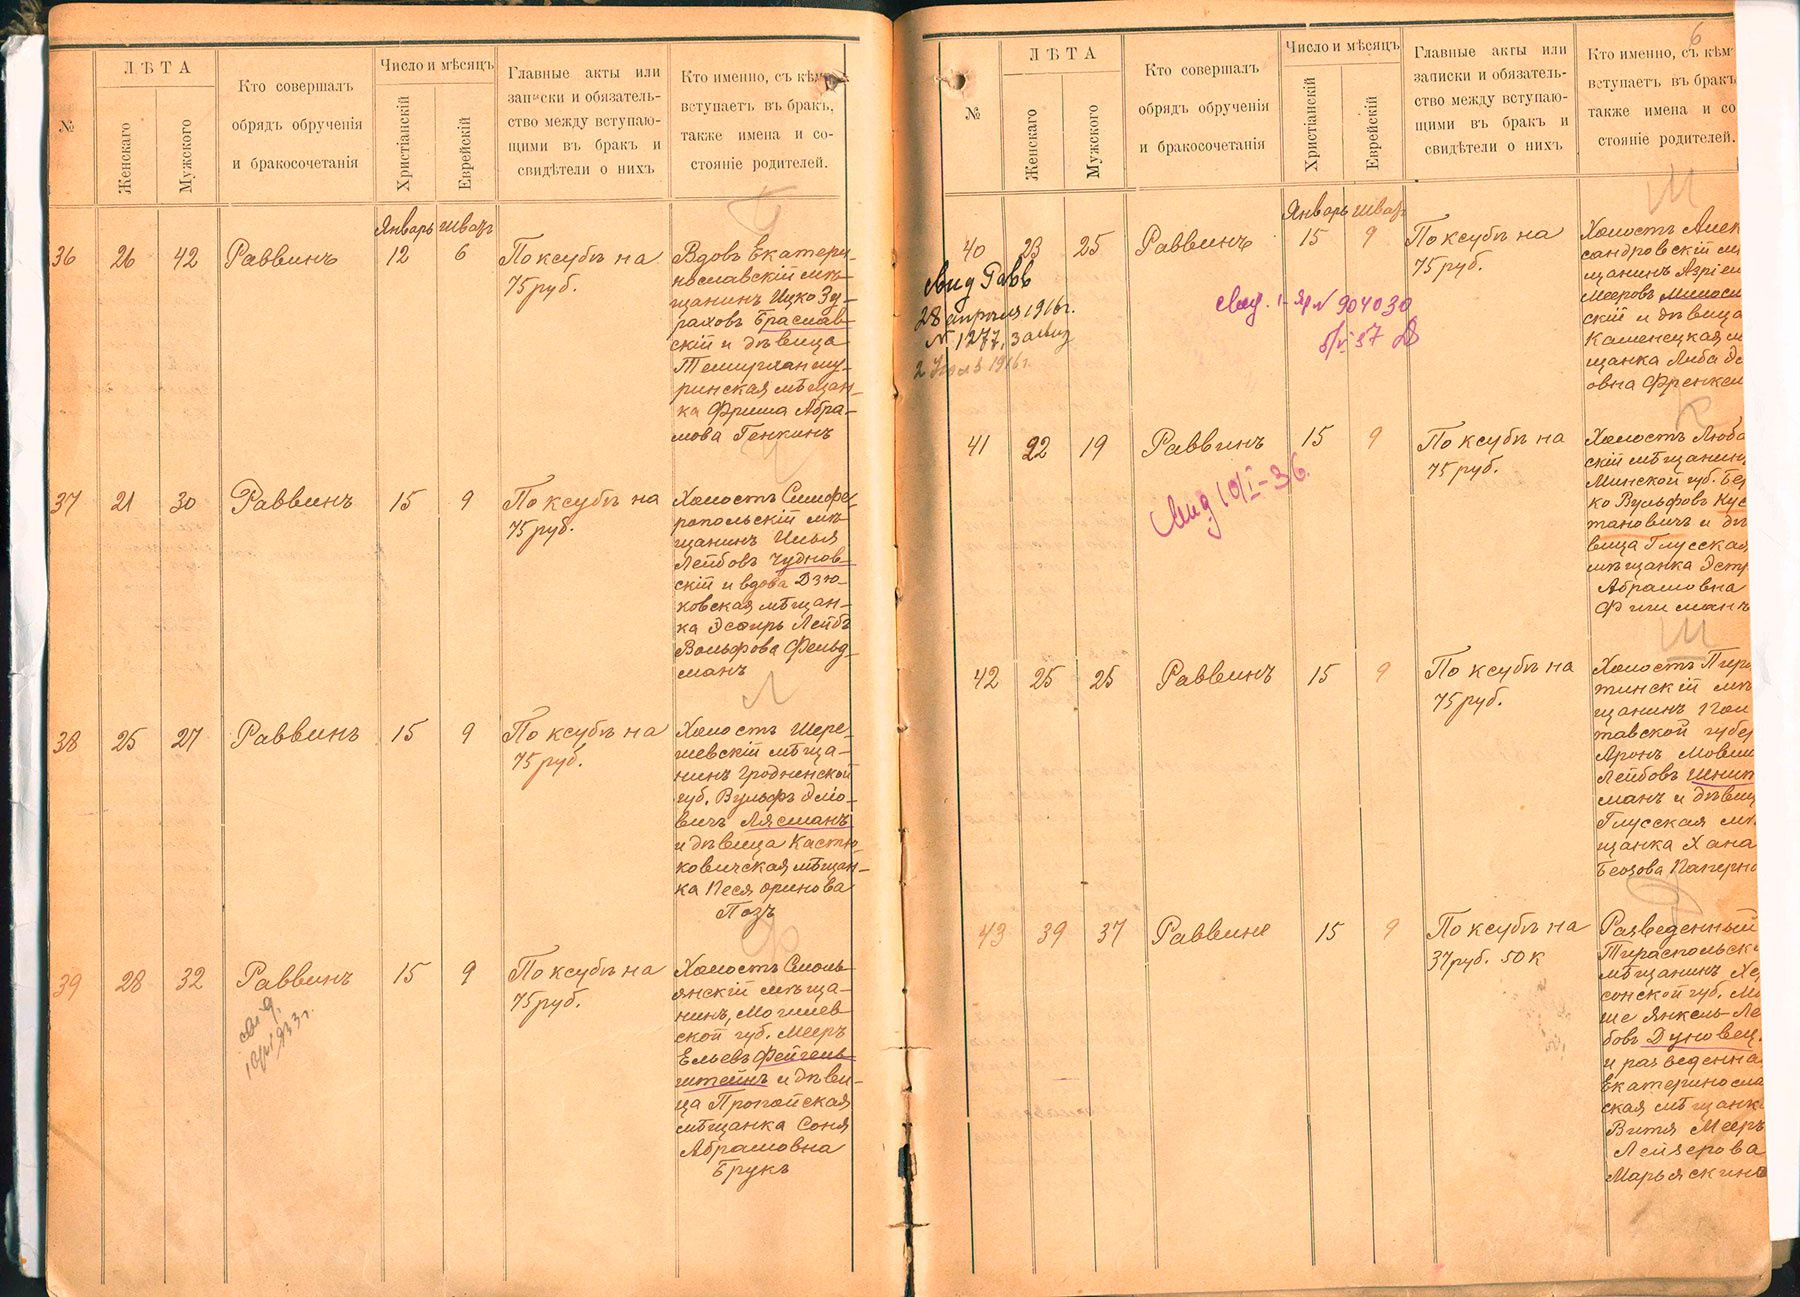 №
ЛѢТА
Женскаго
Мужского
Кто совершалъ
обрядъ обрученія
и бракосочетанія
Число и мѣсяцъ
Христіанскій
Еврейскій
Главные акты или
записки и обязатель-
ство между вступаю-
щими въ бракъ и
свидѣтели о нихъ
Кто именно, съ кѣмъ
вступаетъ въ бракъ,
также имена и со-
стояніе родителей.
Январь Шватъ
36 26 42 Раввинъ 12 6
По ксубѣ на
75 руб.
Вдовъ Екатери-
нославскій мѣ-
щанинъ Ицко
Браслав-
скій и дѣвица
Темирханшу-
ринская мѣщан-
ка Фрима Абра-
мова Генкинъ
37 21 30 Раввинъ 15 9
По ксубѣ на
75 руб.
Холостъ Симфе-
ропольскій мѣ-
щанинъ Илья
Лейбовъ Чуднов-
скій и вдова Дзю-
ковская мѣщан-
ка Эсфирь Лейбъ
Вольфова Фельд-
манъ
38 25 27 Раввинъ 15 9
По ксубѣ на
75 руб.
Холостъ Шере-
шевскій мѣща-
нинъ Гродненской
губ. Вульфъ
Лясманъ
и дѣвица Кастю-
ковичская мѣщан-
ка Песя Оринова
Позъ
39 28 32 Раввинъ 15 9
По ксубѣ на
75 руб.
Холостъ Смоль-
янскій мѣща-
нинъ, Могилев-
ской губ. Мееръ
Ельевъ Фейгель-
штейнъ и дѣви-
ца Пропойская
мѣщанка Соня
Абрамовна
Брукъ
6
№
ЛѢТА
Женскаго
Мужского
Кто совершалъ
обрядъ обрученія
и бракосочетанія
Число и мѣсяцъ
Христіанскій
Еврейскій
Главные акты или
записки и обязатель-
ство между вступаю-
щими въ бракъ и
свидѣтели о нихъ
Кто именно, съ кѣмъ
вступаетъ въ бракъ
также имена и со
стояніе родителей.
Январь Шватъ
40 23 25 Раввинъ 15 9
28 апрѣля 1916г.
№ 1277
№ 904030
По ксубѣ на
75 руб.
Холостъ Алек
сандровскій м
щанинъ Азріел
Мееровъ Милос
скій и дѣвица
Каменецкая м
щанка Либа
овна Френкел
41 22 19 Раввинъ 15 9
10/I-36
По ксубѣ на
75 руб.
Холостъ Люба
скій мѣщанинъ
Минской губ. Бер
ко Вульфовъ Кус
тановичъ и дѣ
вица Глусская
мѣщанка Эст
Абрамовна
Фишманъ
42 25 25 Раввинъ 15 9
По ксубѣ на
75 руб.
Холостъ Пиря
тинскій мѣ
щанинъ Пол
тавской губер
Аронъ Мовш
Лейбовъ Шнип
манъ и дѣвиц
Глусская мѣ
щанка Хана
Паперно
43 39 37 Раввинъ 15 9
По ксубѣ на
37 руб. 50 к
Разведенный
Тираспольск
мѣщанинъ Хе
сонской губ. Мо
ше Янкель Ле
бовъ Дуновец
и разведенна
Екатериносла
ская мѣщанк
Витя Мееръ
Лейзерова
Марьяскина